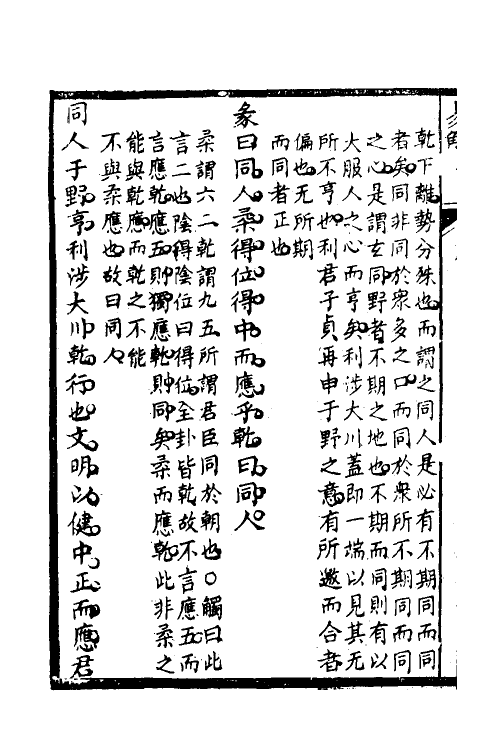 乾下離勢分殊也而謂之同人是必有不期同而同
者矣同非同於衆多之口而同於衆所不期同而同
之心是謂玄同野者不期之地也不期而同則有以
大服人之心而亨矣利涉大川蓋即一端以見其无
所不亨也利君子貞再申于野之意有所邀而合者
偏也无所期
而同者正也
彖曰同人柔得位得中而應乎乾曰同人
柔謂六二乾謂九五所謂君臣同於朝也○觸曰此
言二也陰得陰位曰得位全卦皆乾故不言應五而
言應乾應五則獨應乾則同矣柔而應乾此非柔之
能與乾應而乾之不能
不與柔應也故曰同人
同人于野亨利涉大川乾行也文明以健中正而應君